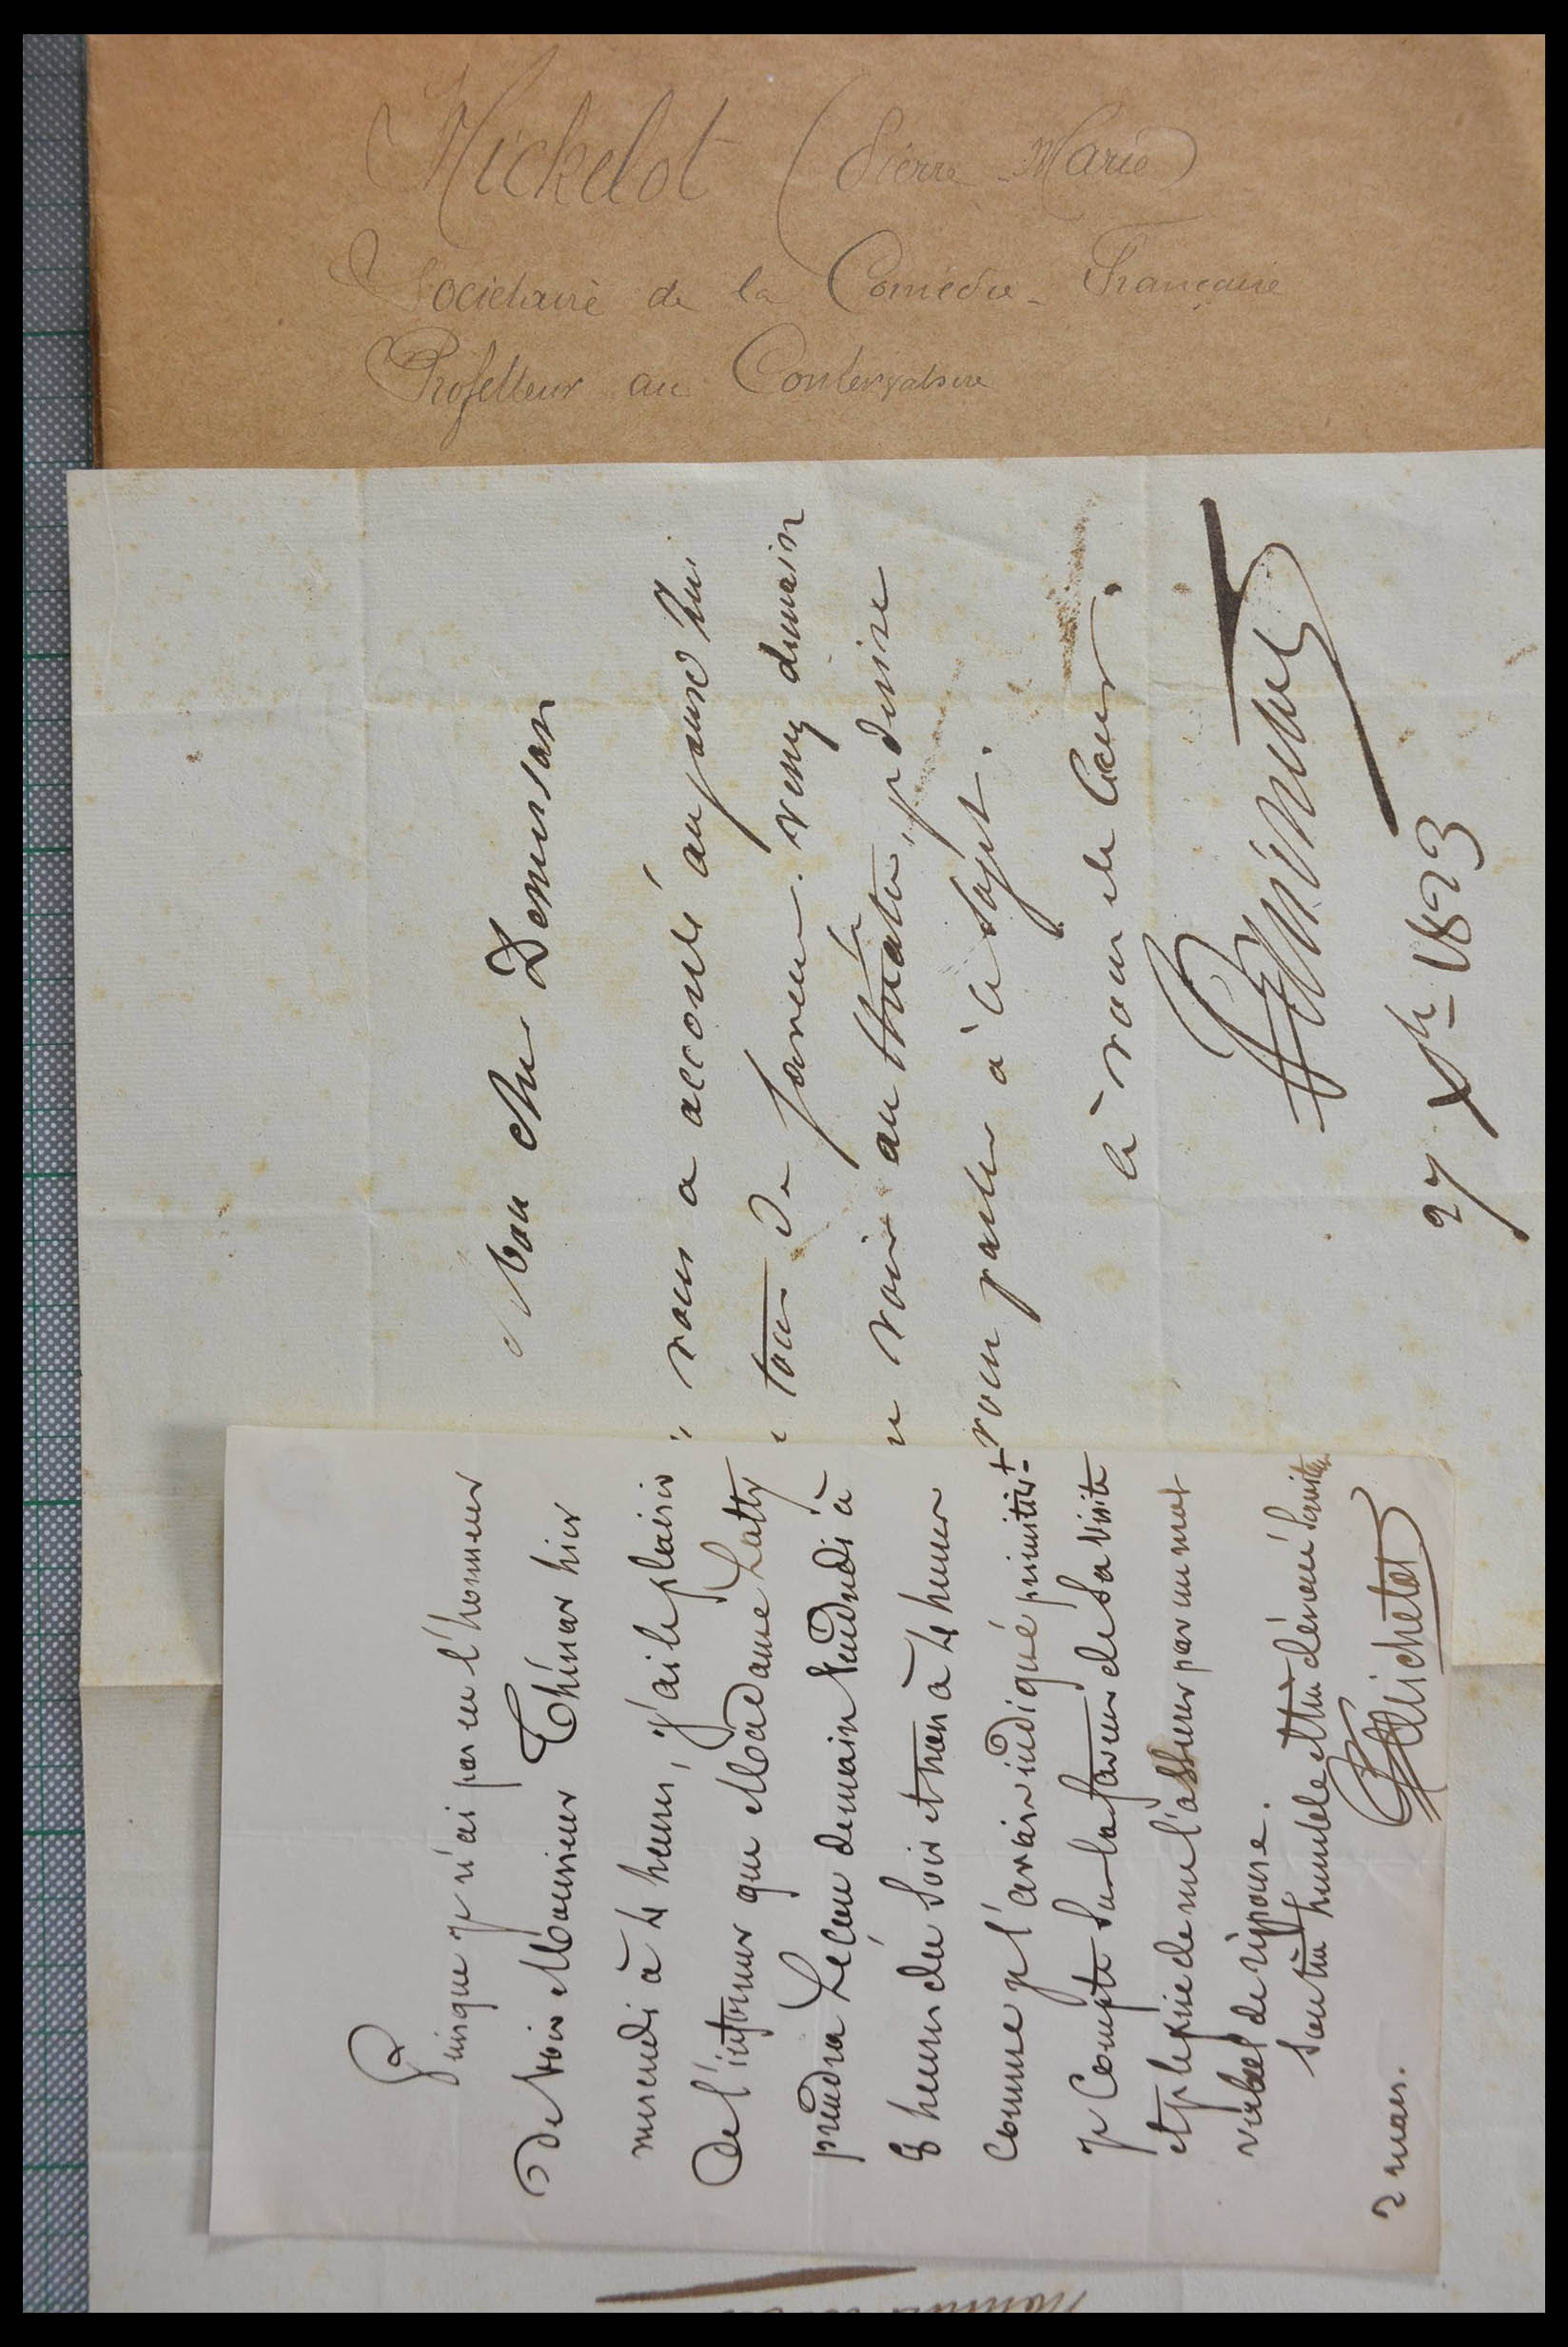 Michelot (Pierre-Marie)
Sociétaire de la Comédie-Française
Professeur au Conservatoire
Mon cher
vous a accordé aujourd'hui
tour de faveur. venez demain
voir au théâtre, je désire
vous parler à ce sujet.
à vous de cœur.
27 Xbre 1823
Puisque je n'ai pas eu l'honneur
de voir Monsieur Thénar hier
mercredi à 4 heures, j'ai le plaisir
de l'informer que Madame Latty
prendra Leçon demain Vendredi à
8 heures du Soir et non à 4 heures
Comme je l'avais indiqué primitivt
je Compte Sur la faveur de Sa Visite
et je le prie de me l'assurer par un mot
verbal de réponse.
Son très humble et très dévoué Serviteur
Michelot
2 mars.